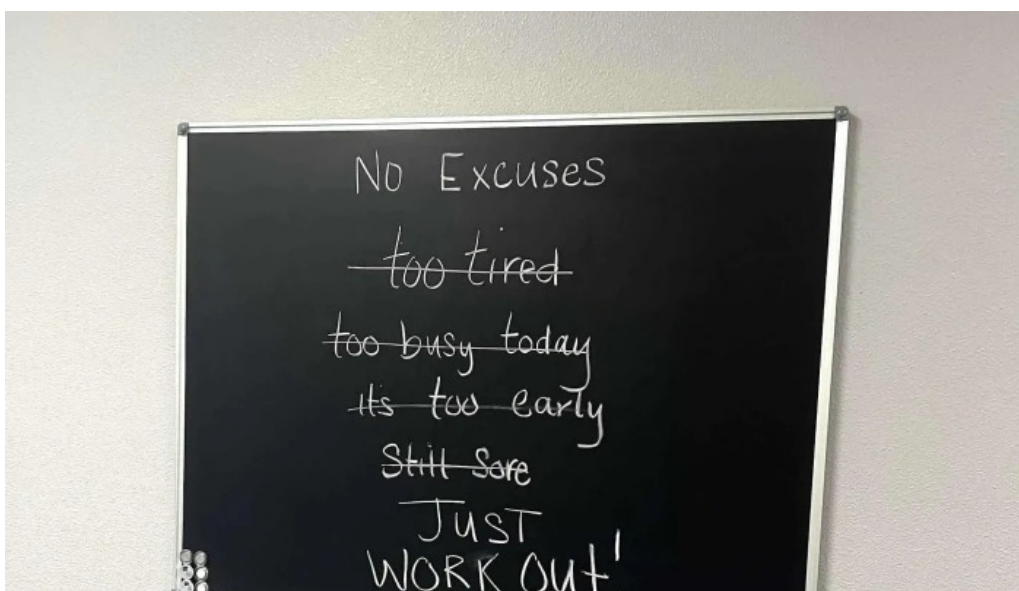 No Excuses
too tired
too busy today
its too early
Still Sore
JUST
WORK OUT!